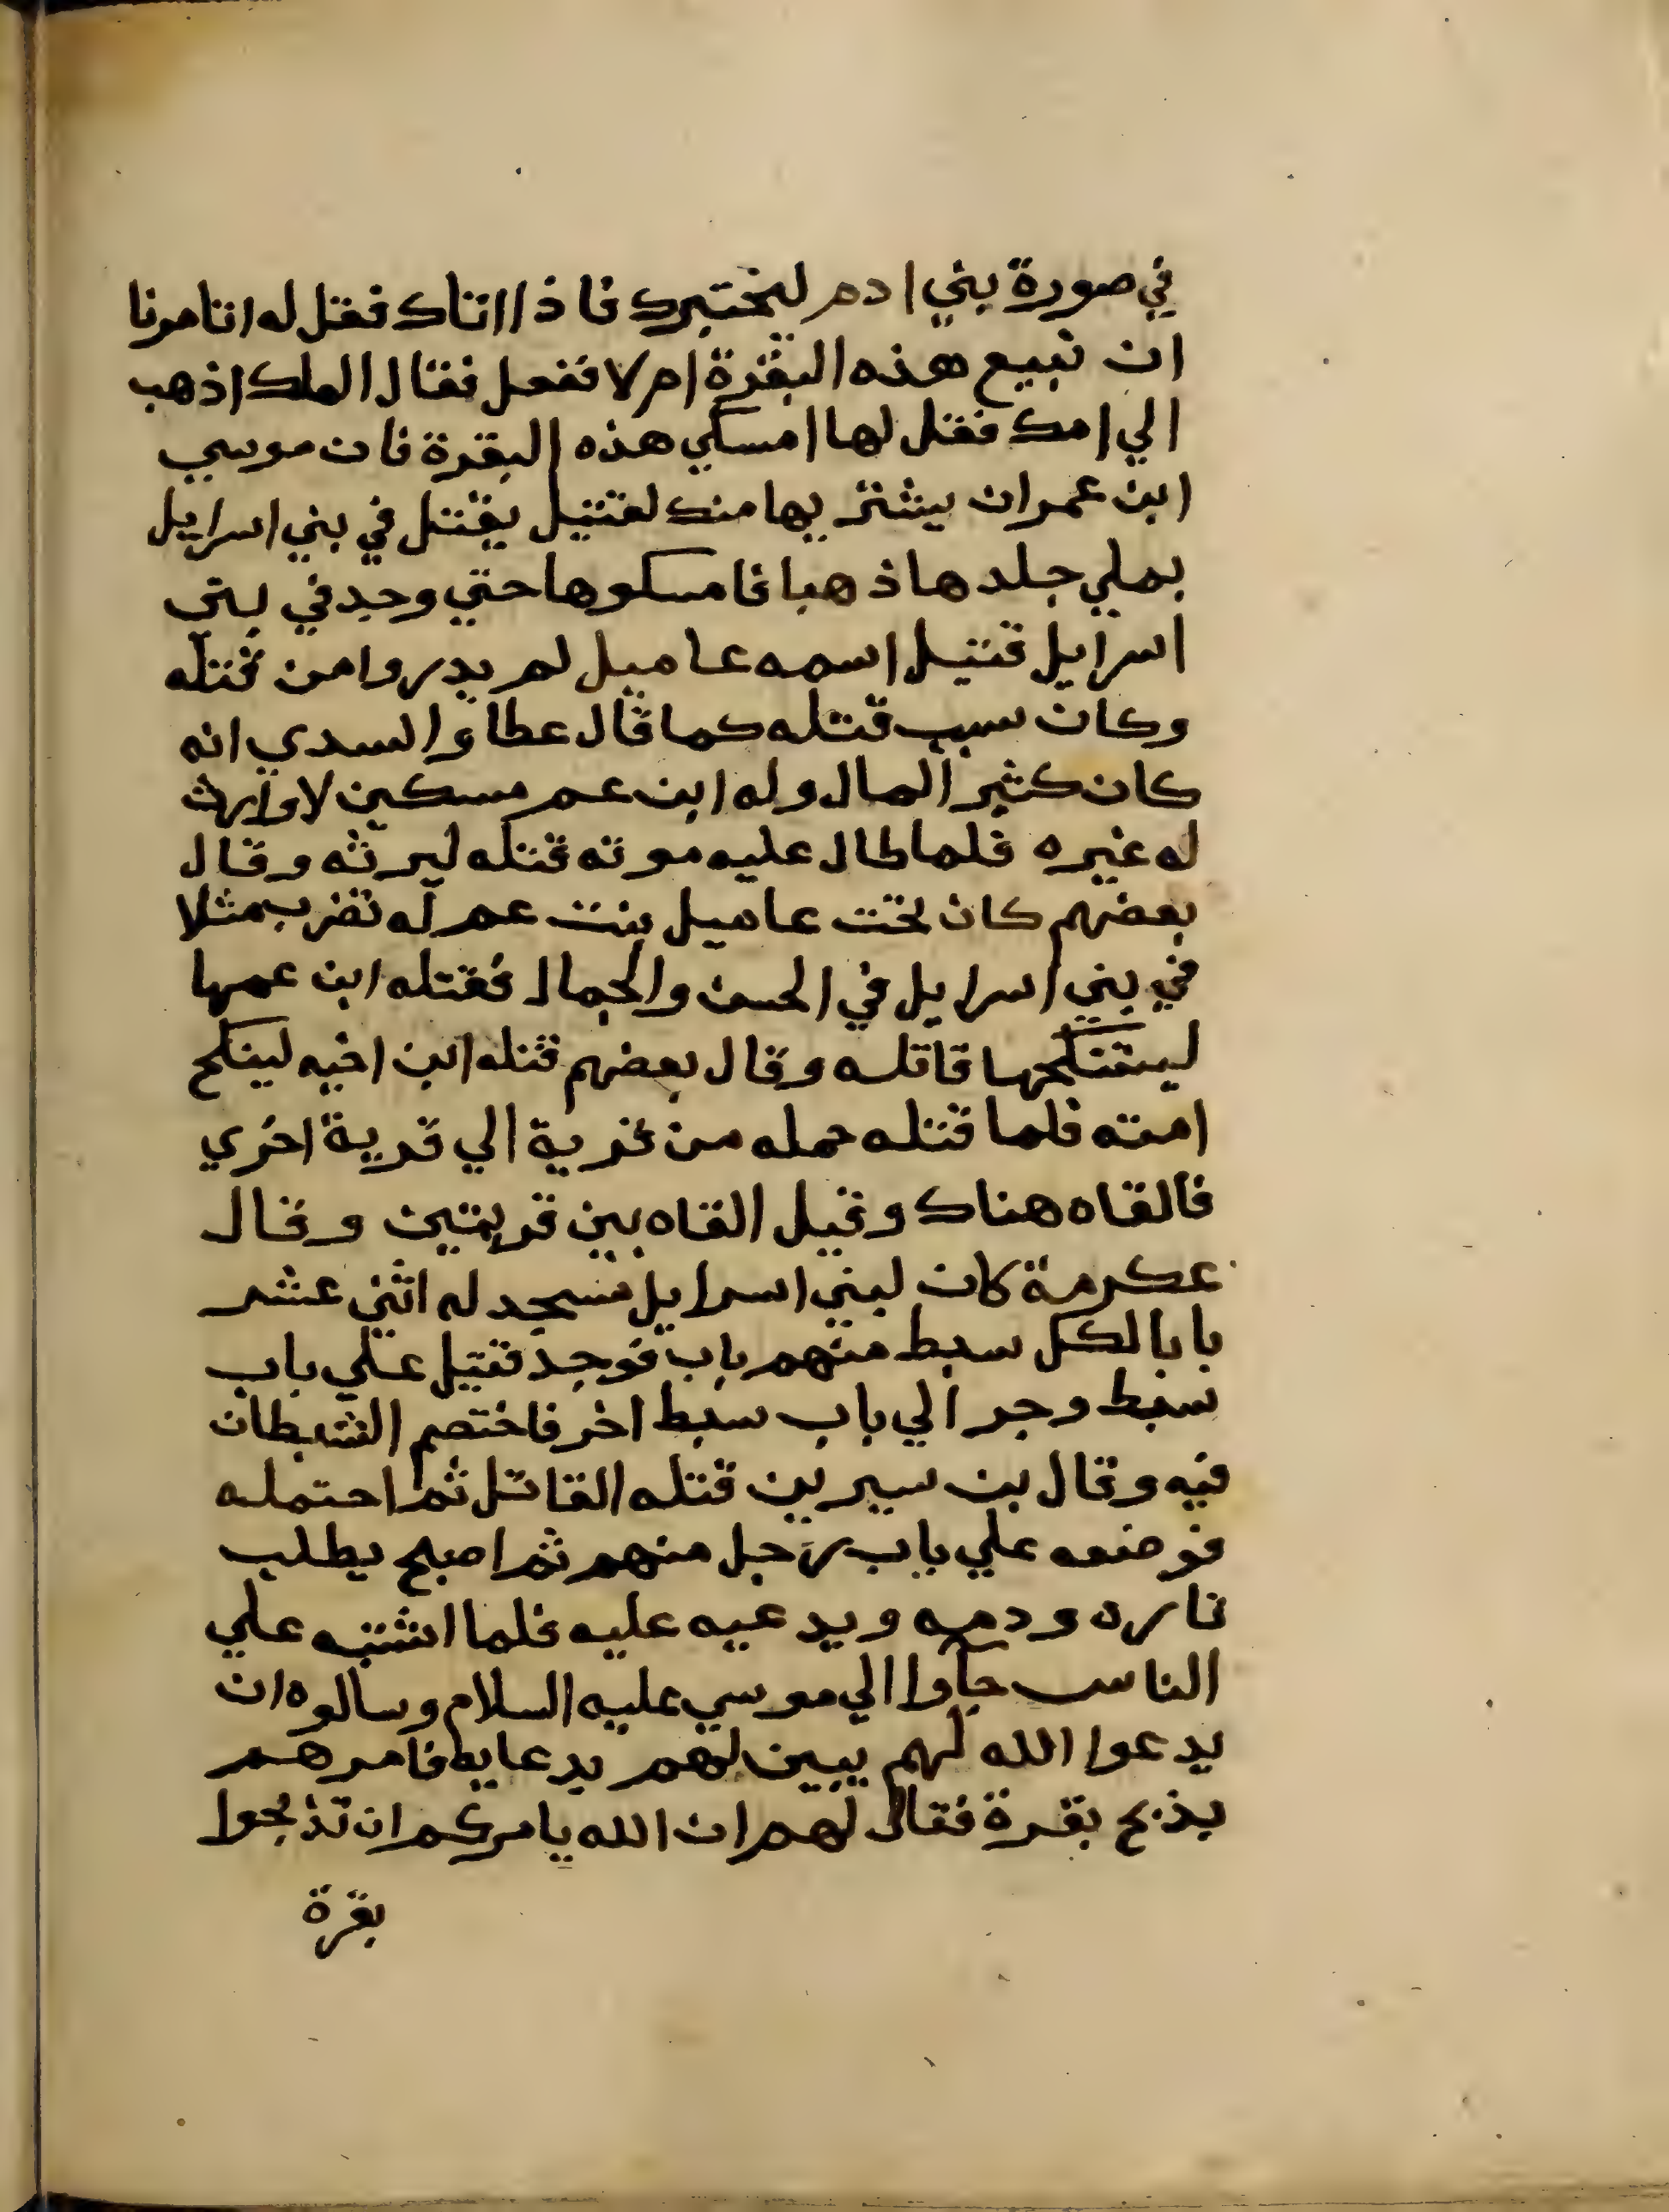 في صورة بني ادم ليختبرك فاذا اتاك فقل له اتامرنا
ان نبيع هذه البقرة ام لا نفعل فقال الملك اذهب
الي امك فقل لها امسكي هذه البقرة فان موسي
ابن عمران يشتريها منك لقتيل يقتل في بني اسرايل
بملي جلدها ذهبا فامسكوها حتي وجد في بني
اسرايل قتيل اسمه عاميل لم يدروا من قتله
وكان سبب قتله كما قال عطا والسدي انه
كان كثير المال وله ابن عم مسكين لا وارث
له غيره فلما طال عليه موته قتله ليرثه وقال
بعضهم كان تحت عاميل بنت عم له تضرب مثلا
في بني اسرايل في الحسن والجمال فقتله ابن عمها
لينكحها قاتله وقال بعضهم قتله ابن اخيه لينكح
امته فلما قتله حمله من قرية الي قرية اخري
فالقاه هناك وقيل القاه بين قريتين وقال
عكرمة كان لبني اسرايل مسجد له اثني عشر
بابا لكل سبط منهم باب فوجد قتيل علي باب
سبط وجر الي باب سبط اخر فاختصم السبطان
فيه وقال بن سيرين قتله القاتل ثم احتمله
فوضعه علي باب رجل منهم ثم اصبح يطلب
ثاره ودمه ويدعيه عليه فلما اشتبه علي
الناس جآوا الي موسي عليه السلام وسالوه ان
يدعوا الله لهم يبين لهم بدعايه فامرهم
بذبح بقرة فقال لهم ان الله يامركم ان تذبحوا
بقرة